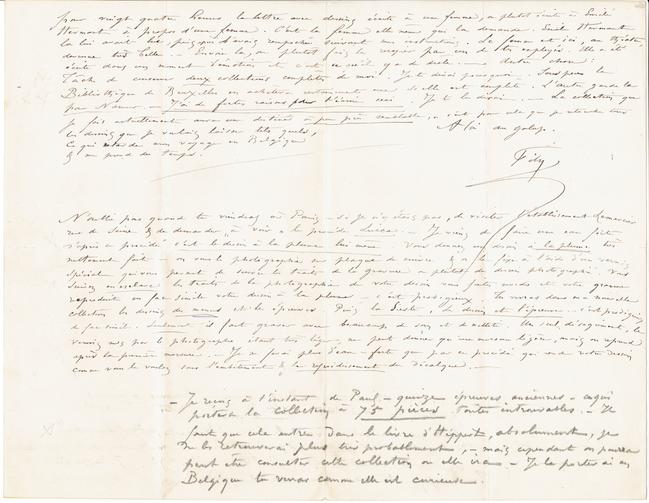 pour vingt quatre heures la lettre avec dessins écrite à une femme, ou plutôt écrite à Emile
Hermant à propos d'une femme. C'est la femme elle même qui la demande. Emile Hermant
la lui avait
devenue très belle. - Envoie la, ou plutôt fais la recopier par un de tes employés. Elle a été
écrite dans un moment d'émotion et c'est ce qu'il y a de drôle. - Autre chose:
Tâche de conserver deux collections complètes de moi. Je te dirai pourquoi. - Sans peine la
Bibliothèque de Bruxelles en achetera certainement une si elle est complète. L'autre garde la
par Nemo - J'ai de fortes raisons pour t'écrire ceci. Je te le dirai. - La collection que
je fais actuellement aura un destiné à peu près semblable, c'est pour cela que je
les dessins que je voulais laisser tels quels,
Ce qui retarde mon voyage en Belgique
& me prend du temps.
A toi au galop.
Fély
N'oublie pas quand tu viendras à Paris - si je n'y étais pas, de visiter l'établissement Lemercier
rue de Seine & de demander à voir le procédé Lucas. - Je viens de faire une eau forte
d'après ce procédé c'est le dessin à la plume lui même. Vous donnez un dessin à la plume très
nettement fait - on vous le photographie sur plaque de cuivre & on le fixe à l'aide d'un vernis
spécial qui vous permet de suivre les traits de la gravure ou plutôt du dessin photographié. Vous
suivez en esclave les traits de la photographie de votre dessin vous faites mordre et votre gravure
reproduit en fac simile votre dessin à la plume - c'est prodigieux. Tu verras dans ma nouvelle
collection les dessins de menus et les épreuves. Puis la Peste, le dessin et l'épreuve - c'est prodigieux
de fac simile. Seulement il faut graver avec beaucoup de soin et de netteté. Un seul désagrément, le
vernis mis par le photographe étant très léger, ne peut donner qu'une morsure légère, mais on reprend
après la première morsure. - Je ne ferai plus d'eau-forte que par ce procédé qui rend votre dessin
comme vous le voulez sans l'embêtement & le refroidissement du décalque. -
- Je reçois à l'instant de Paul - quinze épreuves anciennes - ce qui
portera la collection à 75 pièces toutes introuvables. - Il
faut que cela entre dans le livre d'Hippert, absolument, je
ne les retrouverai plus très probablement, - mais cependant on pourra
peut être consulter cette collection où elle ira - Je la porterai en
Belgique tu verras comme elle est curieuse.